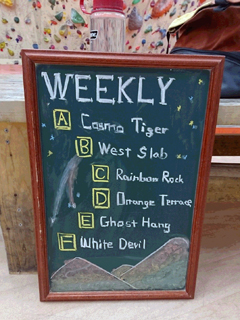 WEEKLY
A Cosmo Tiger
B West Slab
C Rainbow Rock
D Orange Terrace
E Ghost Hang
F White Devil